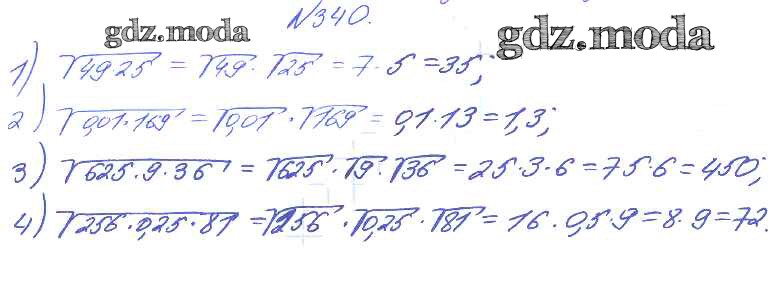 №340.
gdz.moda gdz.moda
1) √49·25 = √49 · √25 = 7 · 5 = 35;
2) √0,01·169 = √0,01 · √169 = 0,1·13 = 1,3;
3) √625·9·36 = √625 · √9 · √36 = 25·3·6 = 75·6 = 450;
4) √256·0,25·81 = √256 · √0,25 · √81 = 16 · 0,5·9 = 8·9 = 72.